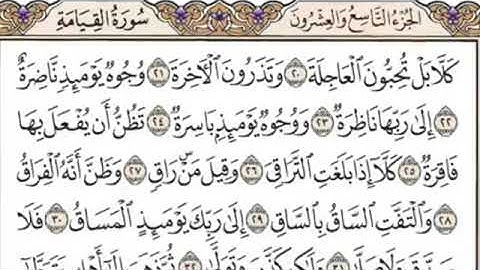 الجزء التاسع والعشرون سورة القيامة
كَلَّا بَلْ تُحِبُّونَ ٱلْعَاجِلَةَ ٢٠ وَتَذَرُونَ ٱلْأَخِرَةَ ٢١ وُجُوهٌ يَوْمَئِذٍ نَّاضِرَةٌ
٢٢ إِلَىٰ رَبِّهَا نَاظِرَةٌ ٢٣ وَوُجُوهٌ يَوْمَئِذٍۭ بَاسِرَةٌ ٢٤ تَظُنُّ أَن يُفْعَلَ بِهَا
فَاقِرَةٌ ٢٥ كَلَّآ إِذَا بَلَغَتِ ٱلتَّرَاقِىَ ٢٦ وَقِيلَ مَنْ رَاقٍ ٢٧ وَظَنَّ أَنَّهُ ٱلْفِرَاقُ
٢٨ وَٱلْتَفَّتِ ٱلسَّاقُ بِٱلسَّاقِ ٢٩ إِلَىٰ رَبِّكَ يَوْمَئِذٍ ٱلْمَسَاقُ ٣٠ فَلَا